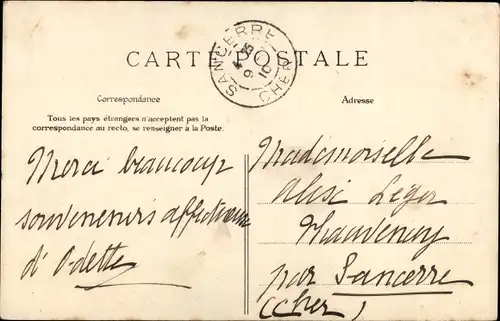 SANCERRE
CHER
CARTE POSTALE
Correspondance
Adresse
Tous les pays étrangers n'acceptent pas la
correspondance au recto, se renseigner à la Poste.
Merci beaucoup
souveneurs affectueux
d'Odette
Mademoiselle
Alise Léger
Thauvenay
par Sancerre
(Cher)